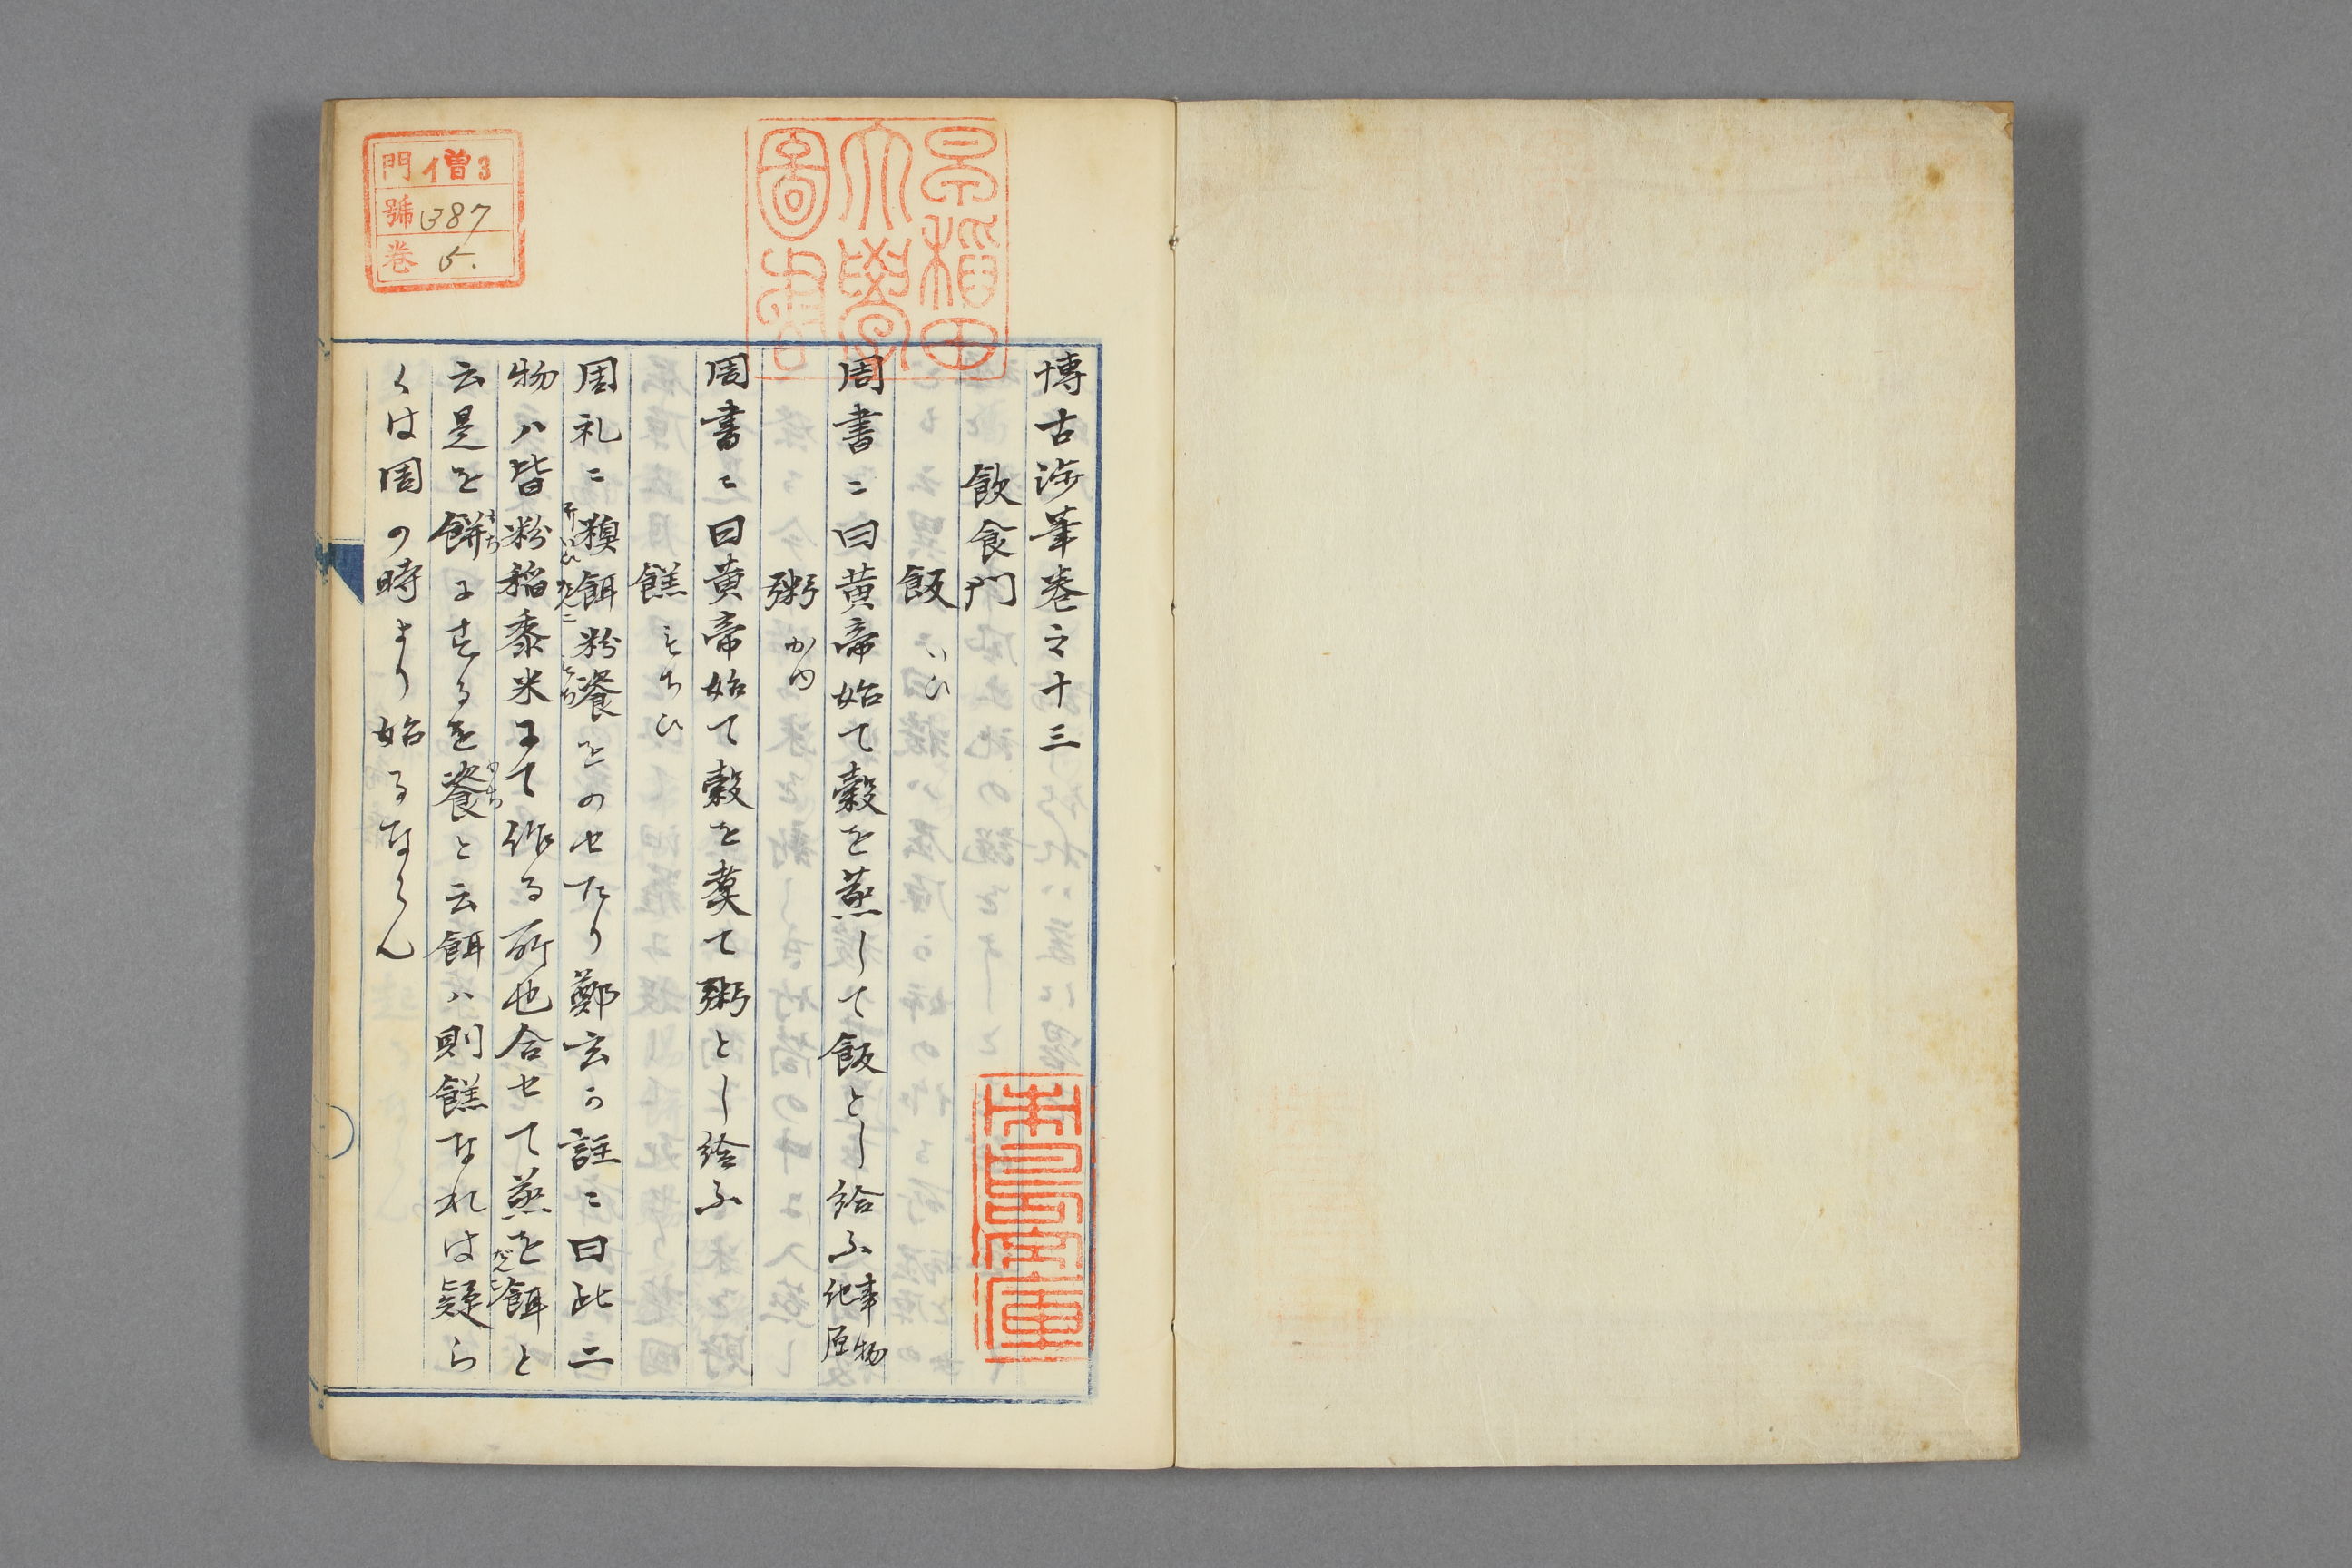 博古渉筆巻之十三
飲食門
飯 いひ
周書ニ曰黄帝始て穀を蒸して飯とし給ふ事物紀原
粥 かゆ
周書ニ曰黄帝始て穀を煑て粥とし給ふ
餻 もちひ
周礼ニ糗餌粉餈をのせたり鄭玄か註ニ曰此二
物ハ皆粉稲黍米にて作る所也合せて蒸を餌と
云是を餅にするを餈と云餌ハ則餻なれは疑ら
くは周の時より始るならん
早稲田大學圖書
門 イ曽3
號 1387
巻 5.